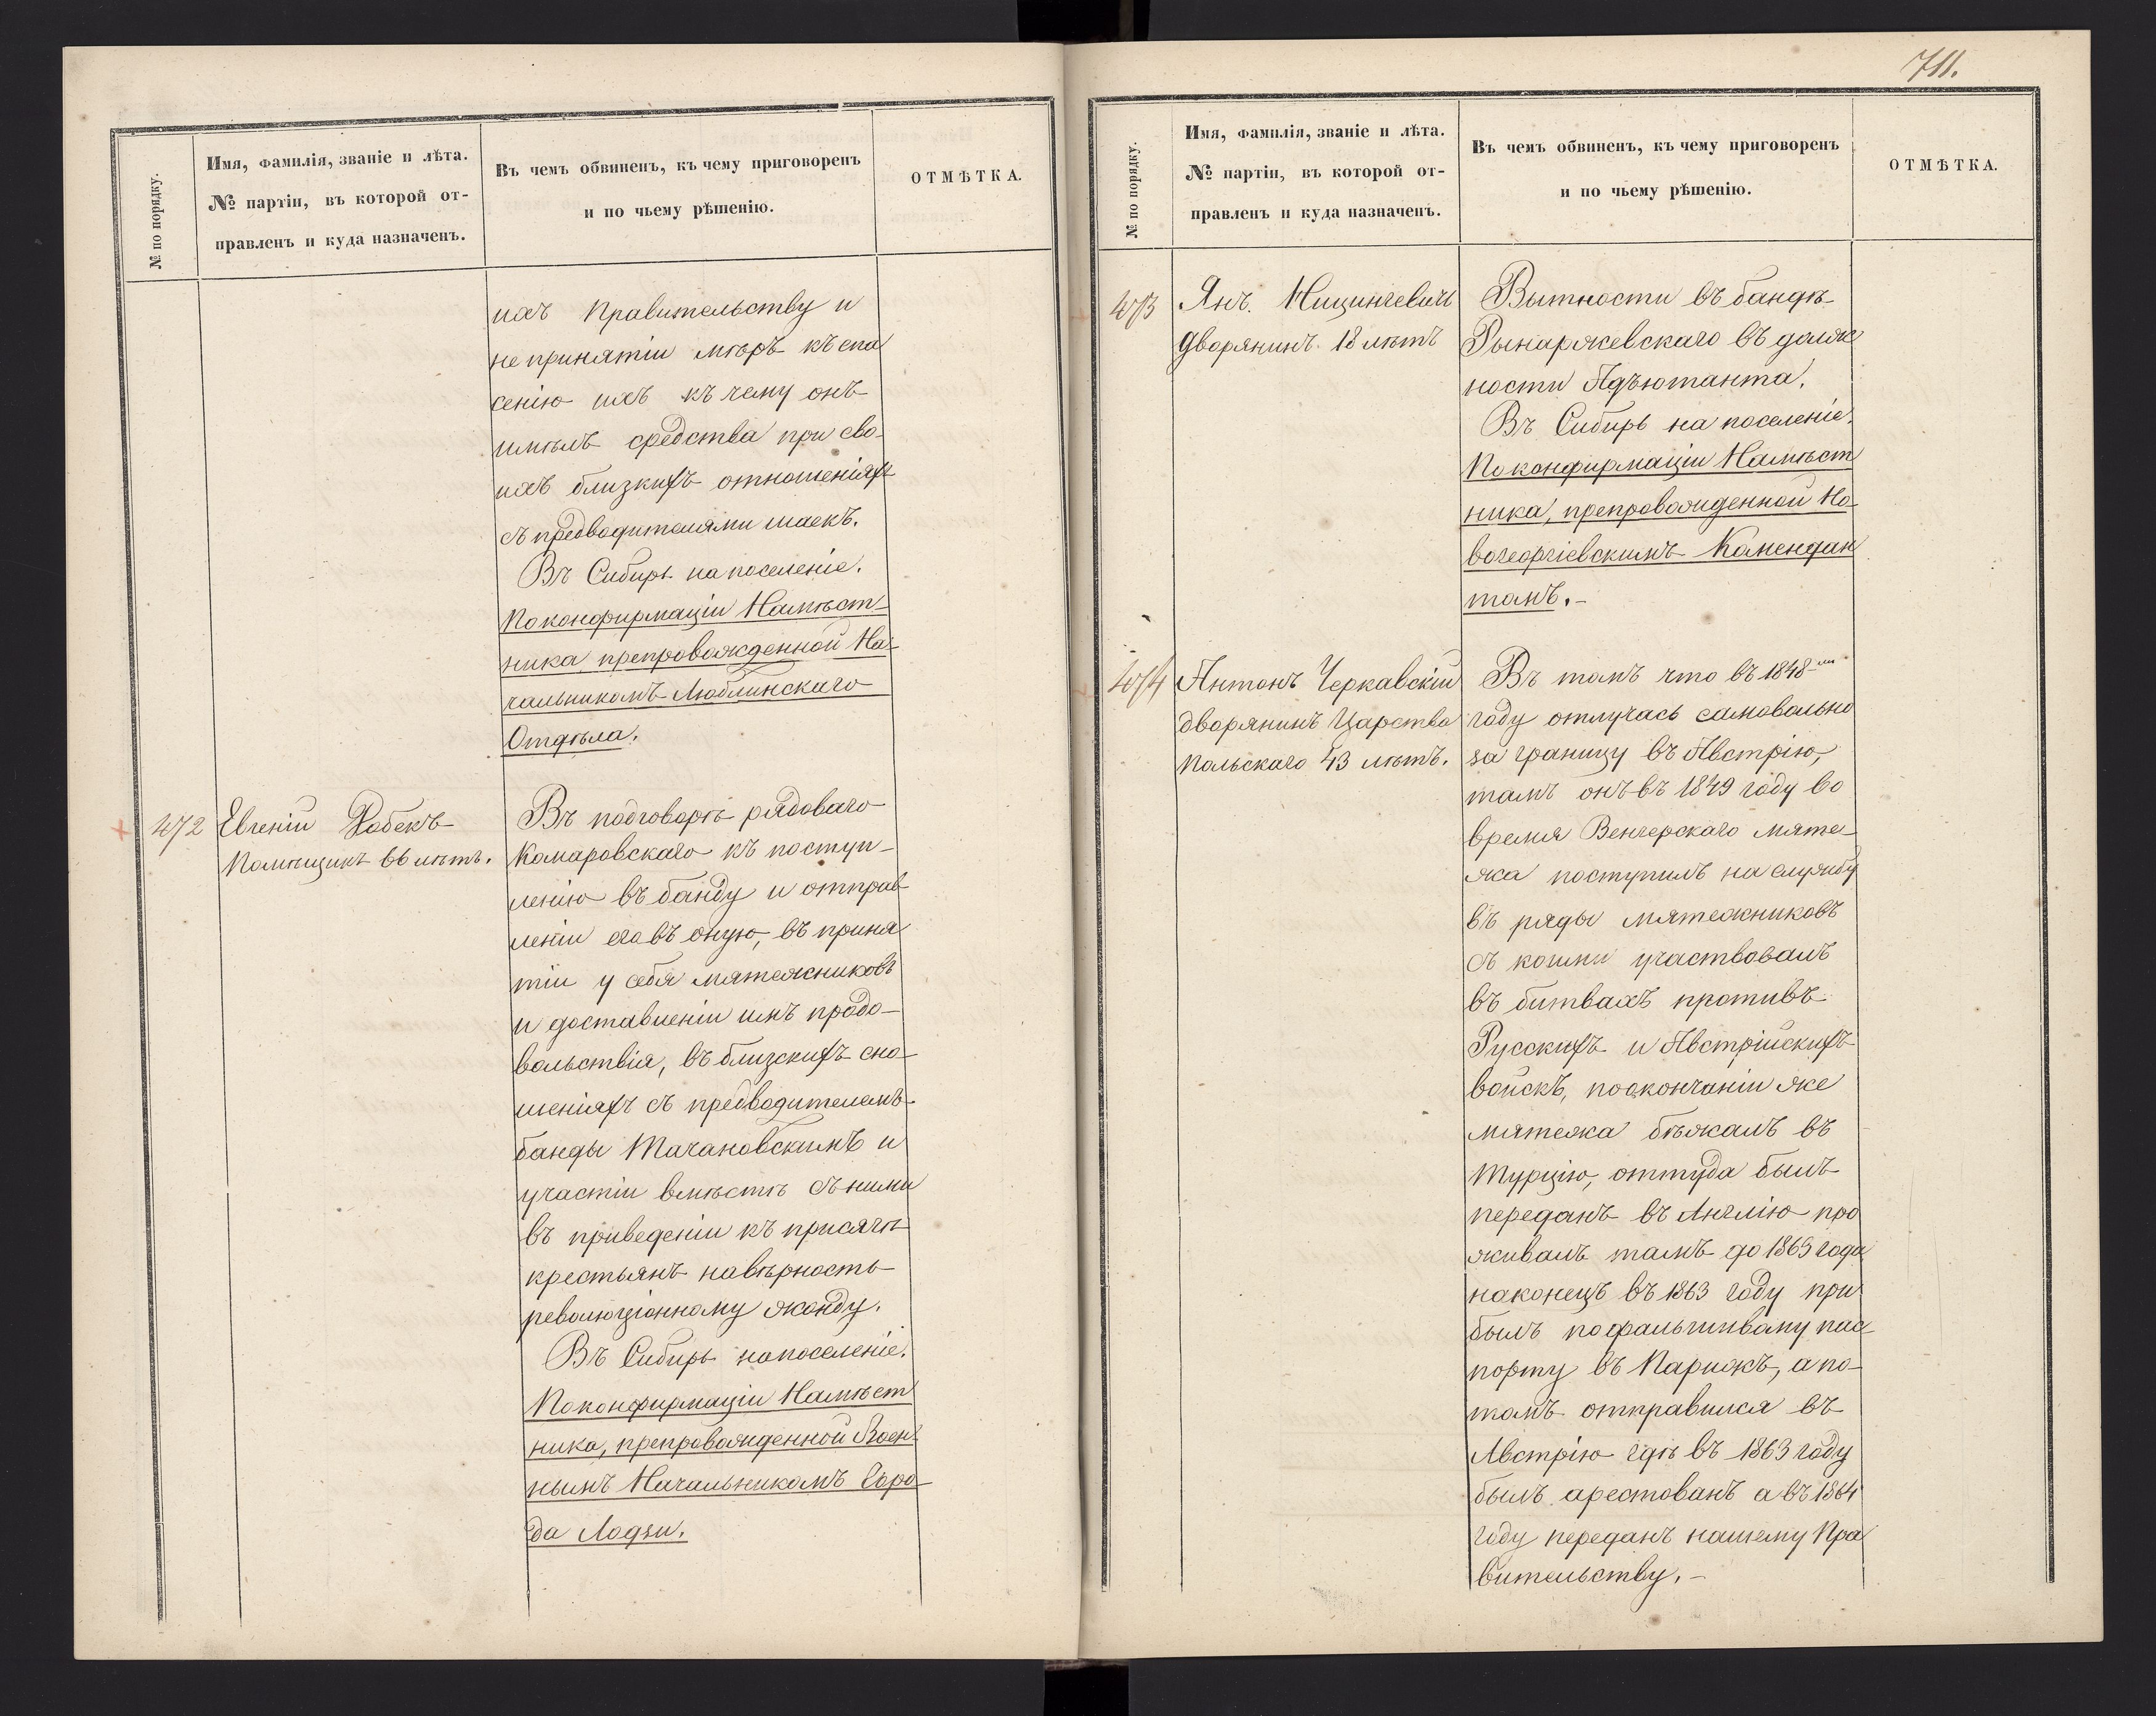 № по порядку.
Имя, фамилія, званіе и лѣта.
№ партіи, въ которой от-
правленъ и куда назначенъ.
Въ чемъ обвиненъ, къ чему приговоренъ
и по чьему рѣшенію.
ОТМѢТКА.
ихъ Правительству и
не принятіи мѣръ къ спа
сенію ихъ къ чему онъ
имѣлъ средства при сво-
ихъ близкихъ отношеніяхъ
съ предводителями шаекъ.
Въ Сибирь на поселеніе.
По конфирмаціи Намѣст-
ника препровожденной На-
чальникомъ Люблинскаго
Отдѣла.
472 Евгеній Добекъ
Помѣщикъ 66 лѣтъ.
Въ подговорѣ рядоваго
Комаровскаго къ поступ-
ленію въ банду и отправ
леніи его въ оную, въ приня
тіи у себя мятежниковъ
и доставленіи имъ продо-
вольствія, въ близкихъ сно-
шеніяхъ съ предводителемъ
банды Тачановскимъ и
участіи вмѣстѣ съ ними
въ приведеніи къ присягѣ
крестьянъ на вѣрность
революціонному жонду.
Въ Сибирь на поселеніе.
По конфирмаціи Намѣст
ника, препровожденной Воен-
нымъ Начальникомъ горо-
да Лодзи.
711.
№ по порядку.
Имя, фамилія, званіе и лѣта.
№ партіи, въ которой от-
правленъ и куда назначенъ.
Въ чемъ обвиненъ, къ чему приговоренъ
и по чьему рѣшенію.
ОТМѢТКА.
473 Янъ
дворянинъ 18 лѣтъ
Бытности въ бандѣ
Рынаржевскаго въ долж
ности Адъютанта.
Въ Сибирь на поселеніе.
По конфирмаціи Намѣст
ника, препровожденной Но-
вогеоргіевскимъ Комендан
томъ.-
474 Антонъ Черкавскій
дворянинъ Царства
Польскаго 43 лѣтъ.
Въ томъ что въ 1848-мъ
году отлучась самовольно
за границу въ Австрію,
тамъ онъ въ 1849 году во
время Венгерскаго мяте-
жа поступилъ на службу
въ ряды мятежниковъ
съ коими участвовалъ
въ битвахъ противъ
Русскихъ и Австрійскихъ
войскъ, по окончаніи же
мятежа бѣжалъ въ
Турцію, оттуда былъ
переданъ въ Англію про
живалъ тамъ до 1863 года
наконецъ въ 1863 году при
былъ по фальшивому пас-
порту въ Парижъ, а по-
томъ отправился въ
Австрію гдѣ въ 1863 году
былъ арестованъ а въ 1864
году переданъ нашему Пра
вительству.-